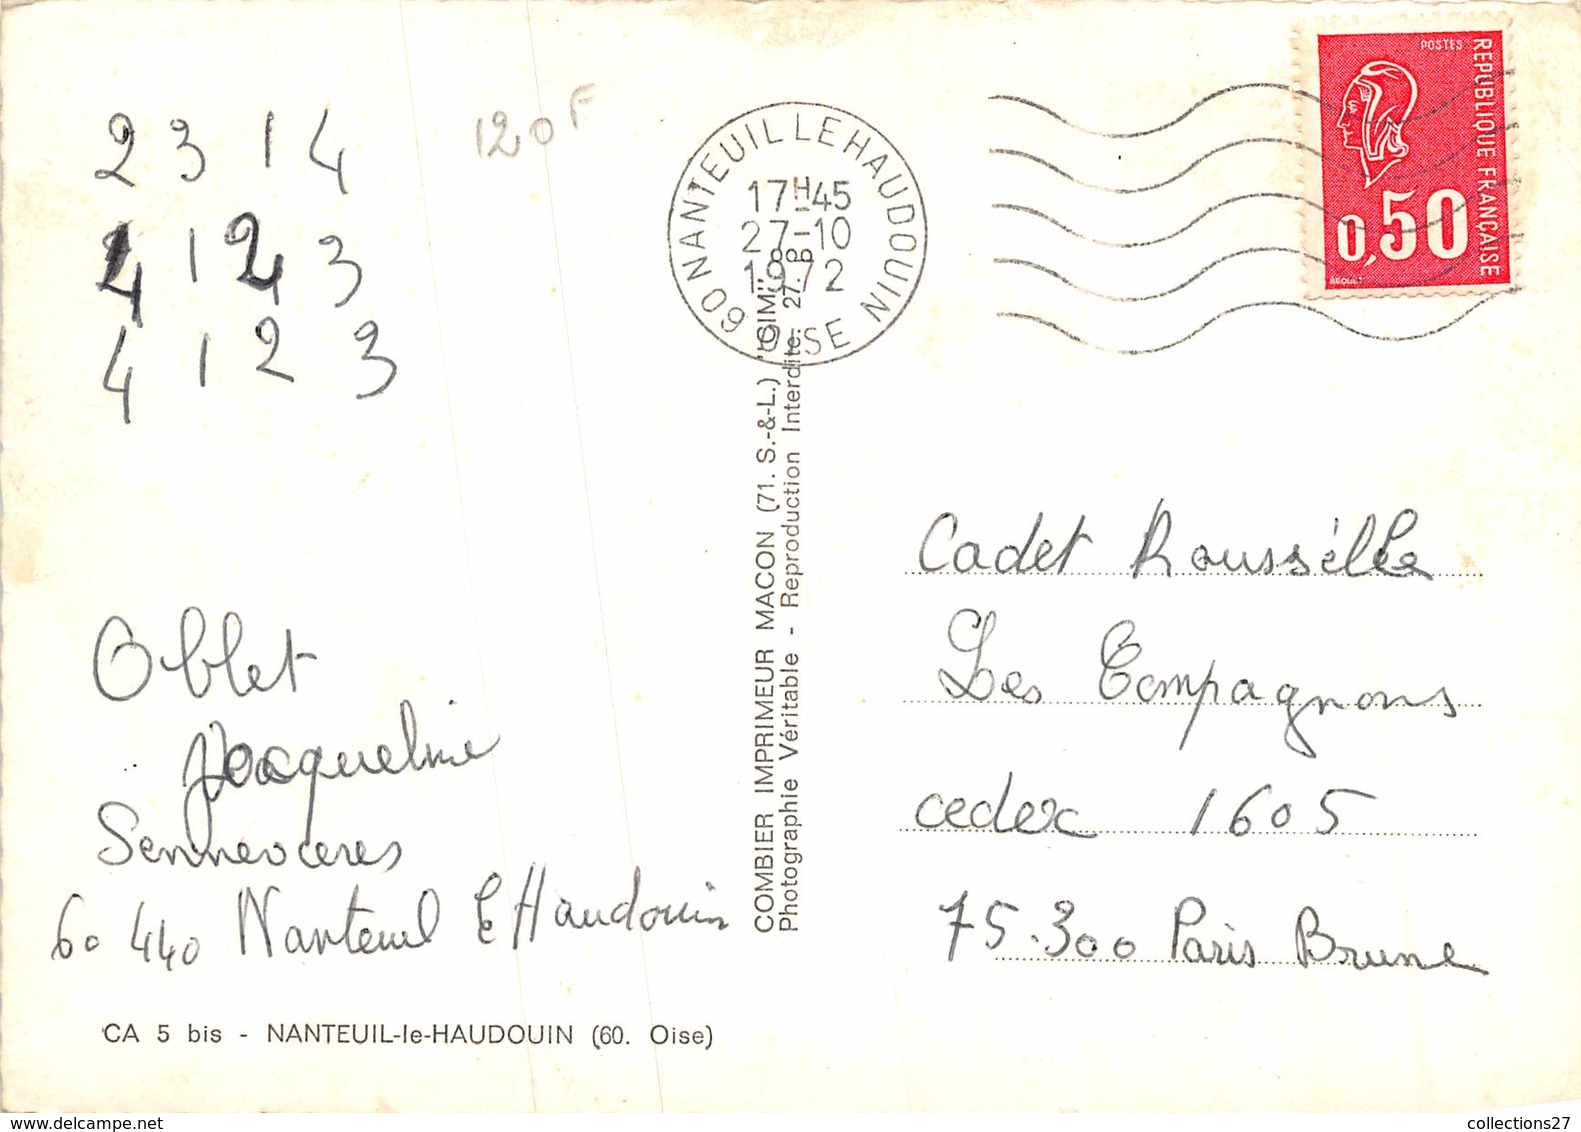 2 3 1 4
4 1 2 3
4 1 2 3
120F
60 NANTEUIL LE HAUDOUIN
17H45
27-10
1972
OISE
POSTES
REPUBLIQUE FRANÇAISE
0,50
BEQUET
COMBIER IMPRIMEUR MACON (71. S.-&-L.) "CIM"
Photographie Véritable - Reproduction Interdite. 27.
Oblet
Jacqueline
Sennevieres
60 440 Nanteuil le Haudouin
CA 5 bis - NANTEUIL-le-HAUDOUIN (60. Oise)
Cadet Roussélle
Les Compagnons
cedex 1605
75.300 Paris Brune
collections27